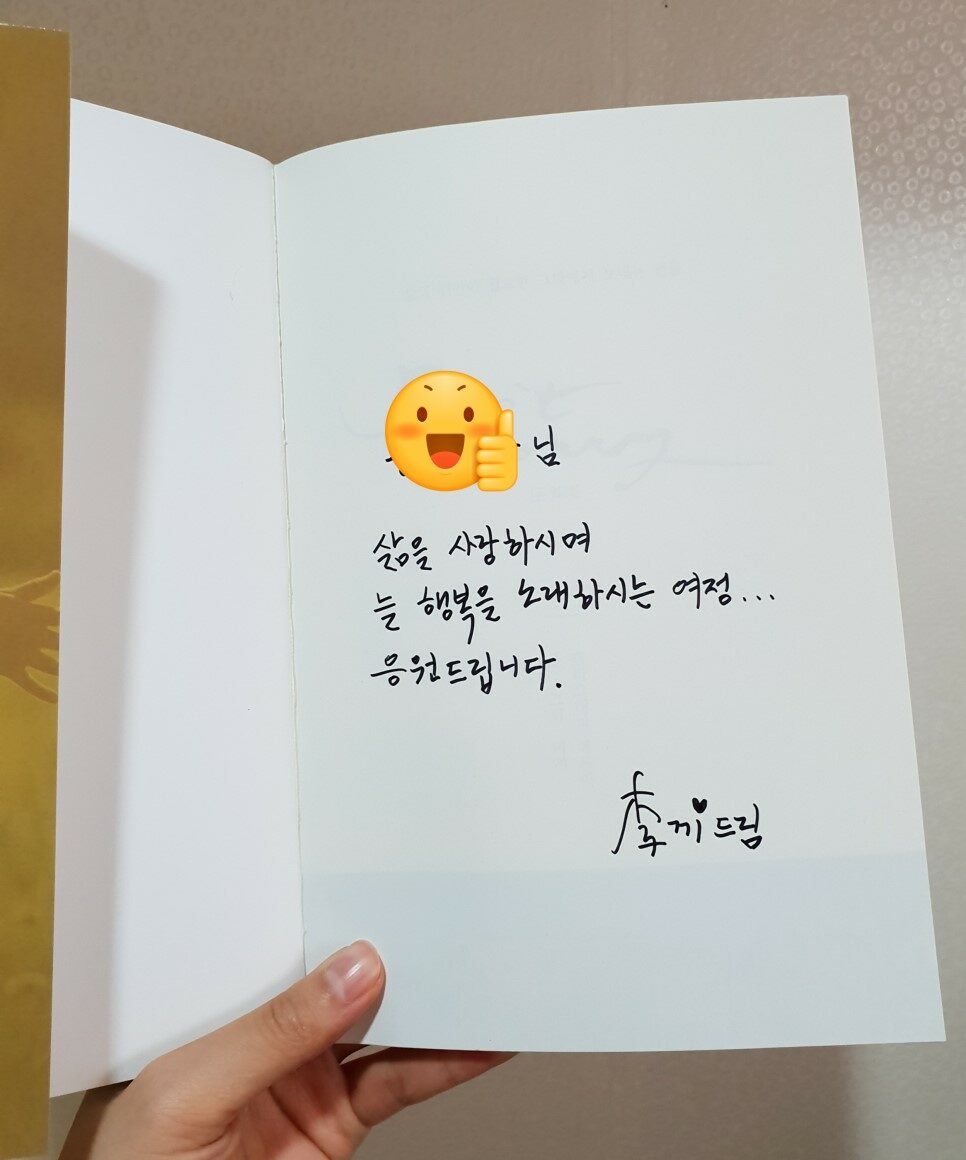 님
삶을 사랑하시며
늘 행복을 노래하시는 여정...
응원드립니다.
드림